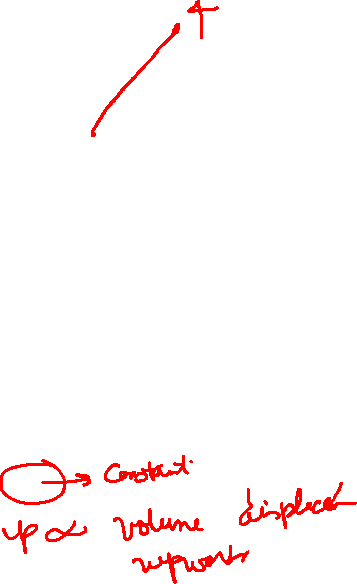 constant
up ∝ volume displaced
upwards